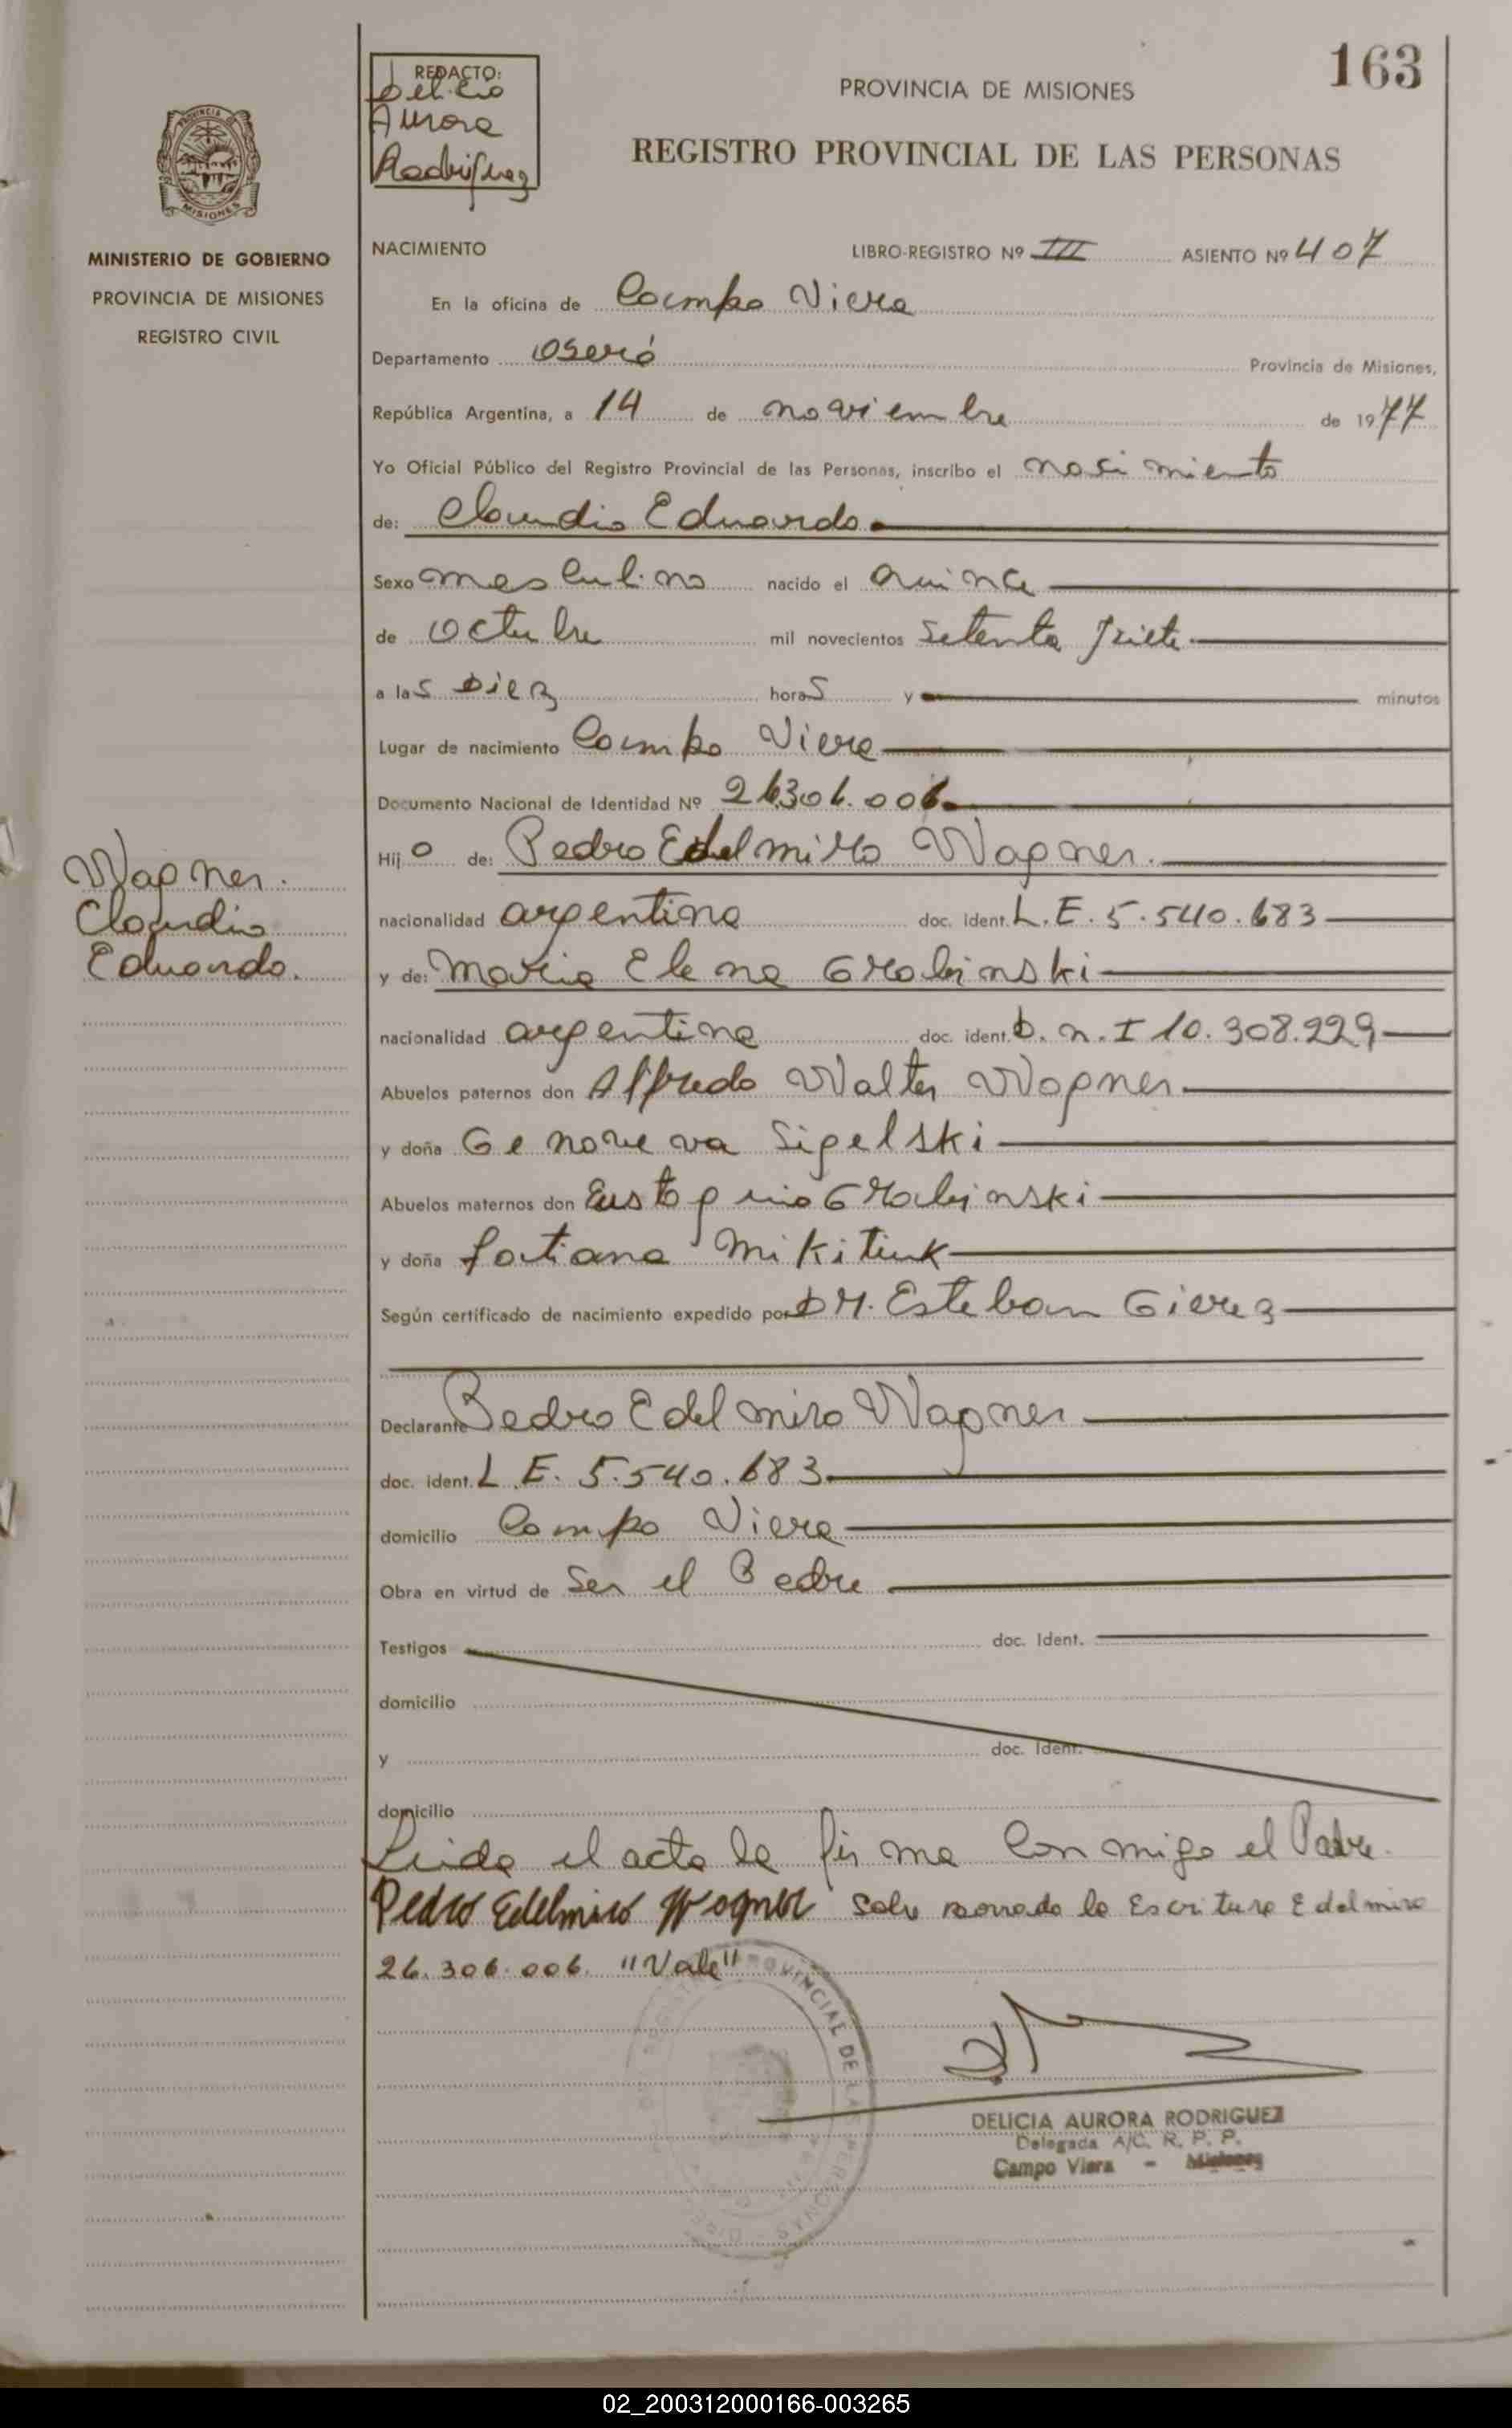 163
REDACTO:
Delicia
Aurora
Rodriguez
PROVINCIA DE MISIONES
REGISTRO PROVINCIAL DE LAS PERSONAS
PROVINCIA
MISIONES
MINISTERIO DE GOBIERNO
PROVINCIA DE MISIONES
REGISTRO CIVIL
NACIMIENTO LIBRO-REGISTRO Nº III ASIENTO Nº 407
En la oficina de Campo Viera
Departamento Oberá Provincia de Misiones,
República Argentina, a 14 de noviembre de 1977
Yo Oficial Público del Registro Provincial de las Personas, inscribo el nasimiento
de: Claudio Eduardo
Sexo masculino nacido el quince
de octubre mil novecientos setenta siete
a las Diez horas y minutos
Lugar de nacimiento Campo Viera
Documento Nacional de Identidad Nº 26.306.006
Hijo de: Pedro Edelmiro Wagner.
Wagner.
Claudio
Eduardo.
nacionalidad argentina doc. ident. L.E. 5.540.683
y de: Maria Elena Grabinski
nacionalidad argentina doc. ident. D.n.I 10.308.229
Abuelos paternos don Alfredo Walter Wagner
y doña Genoveva Sigelski
Abuelos maternos don Eustaquio Grabinski
y doña Tatiana Mikitiuk
Según certificado de nacimiento expedido por DR. Esteban Gierez
Declarante Pedro Edelmiro Wagner
doc. ident. L.E. 5.540.683
domicilio Campo Viera
Obra en virtud de ser el Padre
Testigos doc. Ident.
domicilio
y doc. Ident.
domicilio
Leida el acta la firma conmigo el Padre.
Pedro Edelmiro Wagner Salv borrado la Escritura Edelmiro
26.306.006. "Vale"
PROVINCIAL DE LAS PERSONAS
DELICIA AURORA RODRIGUEZ
Delegada A/C. R. P. P.
Campo Viera - Misiones
02_200312000166-003265